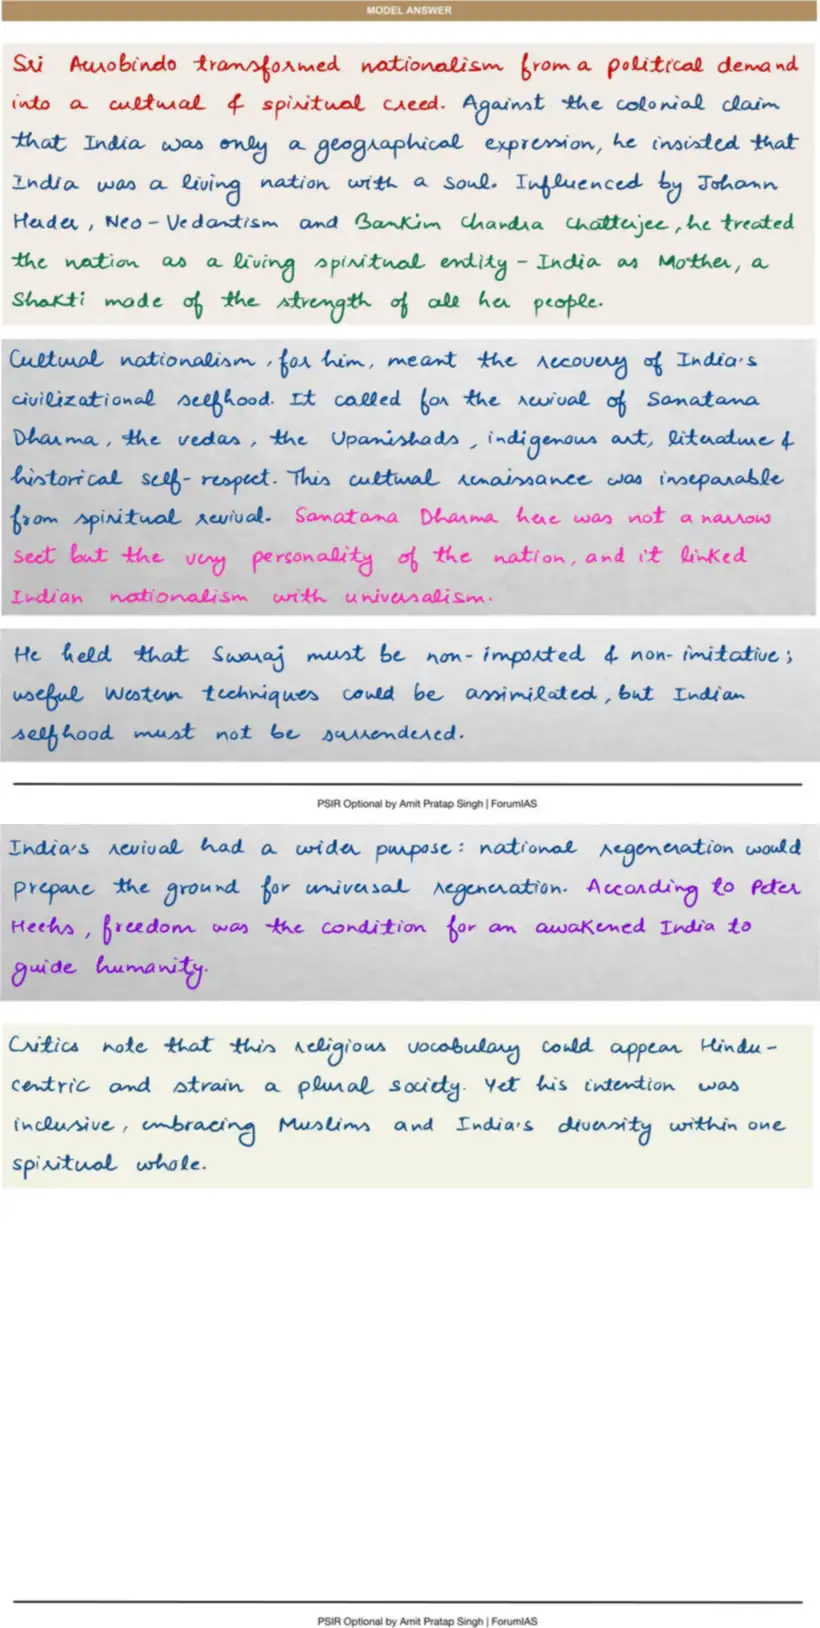 MODEL ANSWER
Sri Aurobindo transformed nationalism from a political demand
into a cultural & spiritual creed. Against the colonial claim
that India was only a geographical expression, he insisted that
India was a living nation with a soul. Influenced by Johann
Herder, Neo-Vedantism and Bankim Chandra Chatterjee, he treated
the nation as a living spiritual entity - India as Mother, a
Shakti made of the strength of all her people.
Cultural nationalism, for him, meant the recovery of India's
civilizational selfhood. It called for the revival of Sanatana
Dharma, the vedas, the Upanishads, indigenous art, literature &
historical self-respect. This cultural renaissance was inseparable
from spiritual revival. Sanatana Dharma here was not a narrow
sect but the very personality of the nation, and it linked
Indian nationalism with universalism.
He held that Swaraj must be non-imported & non-imitative;
useful Western techniques could be assimilated, but Indian
selfhood must not be surrendered.
PSIR Optional by Amit Pratap Singh | ForumIAS
India's revival had a wider purpose: national regeneration would
prepare the ground for universal regeneration. According to Peter
Heehs, freedom was the condition for an awakened India to
guide humanity.
Critics note that this religious vocabulary could appear Hindu-
centric and strain a plural society. Yet his intention was
inclusive, embracing Muslims and India's diversity within one
spiritual whole.
PSIR Optional by Amit Pratap Singh | ForumIAS